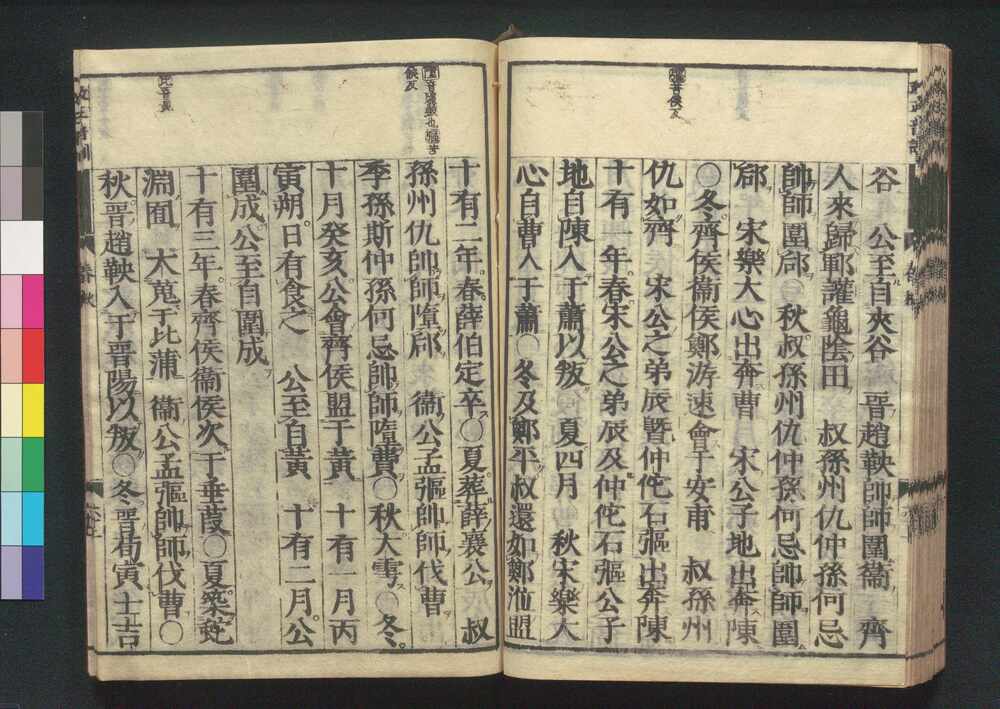 谷　公至自夾谷　晋趙鞅帥師圍衞　齊
人來歸鄆讙龜陰田　叔孫州仇仲孫何忌
帥師圍郈　秋叔孫州仇仲孫何忌帥師圍
郈　宋樂大心出奔曹　宋公子地出奔陳
○冬齊侯衞侯鄭游速會于安甫　叔孫州
仇如齊　宋公之弟辰暨仲佗石彄出奔陳
十有一年春宋公之弟辰及仲佗石彄公子
地自陳入于蕭以叛　夏四月　秋宋樂大
心自曹入于蕭○冬及鄭平叔還如鄭涖盟
十有二年春薛伯定卒○夏葬薛襄公　叔
孫州仇帥師隳郈　衞公孟彄帥師伐曹
季孫斯仲孫何忌帥師隳費○秋大雩○冬
十月癸亥公會齊侯盟于黃　十有一月丙
寅朔日有食之　公至自黃　十有二月公
圍成公至自圍成
十有三年春齊侯衞侯次于垂葭○夏築蛇
淵囿　大蒐于比蒲　衞公孟彄帥師伐曹○
秋晋趙鞅入于晋陽以叛○冬晋荀寅士吉